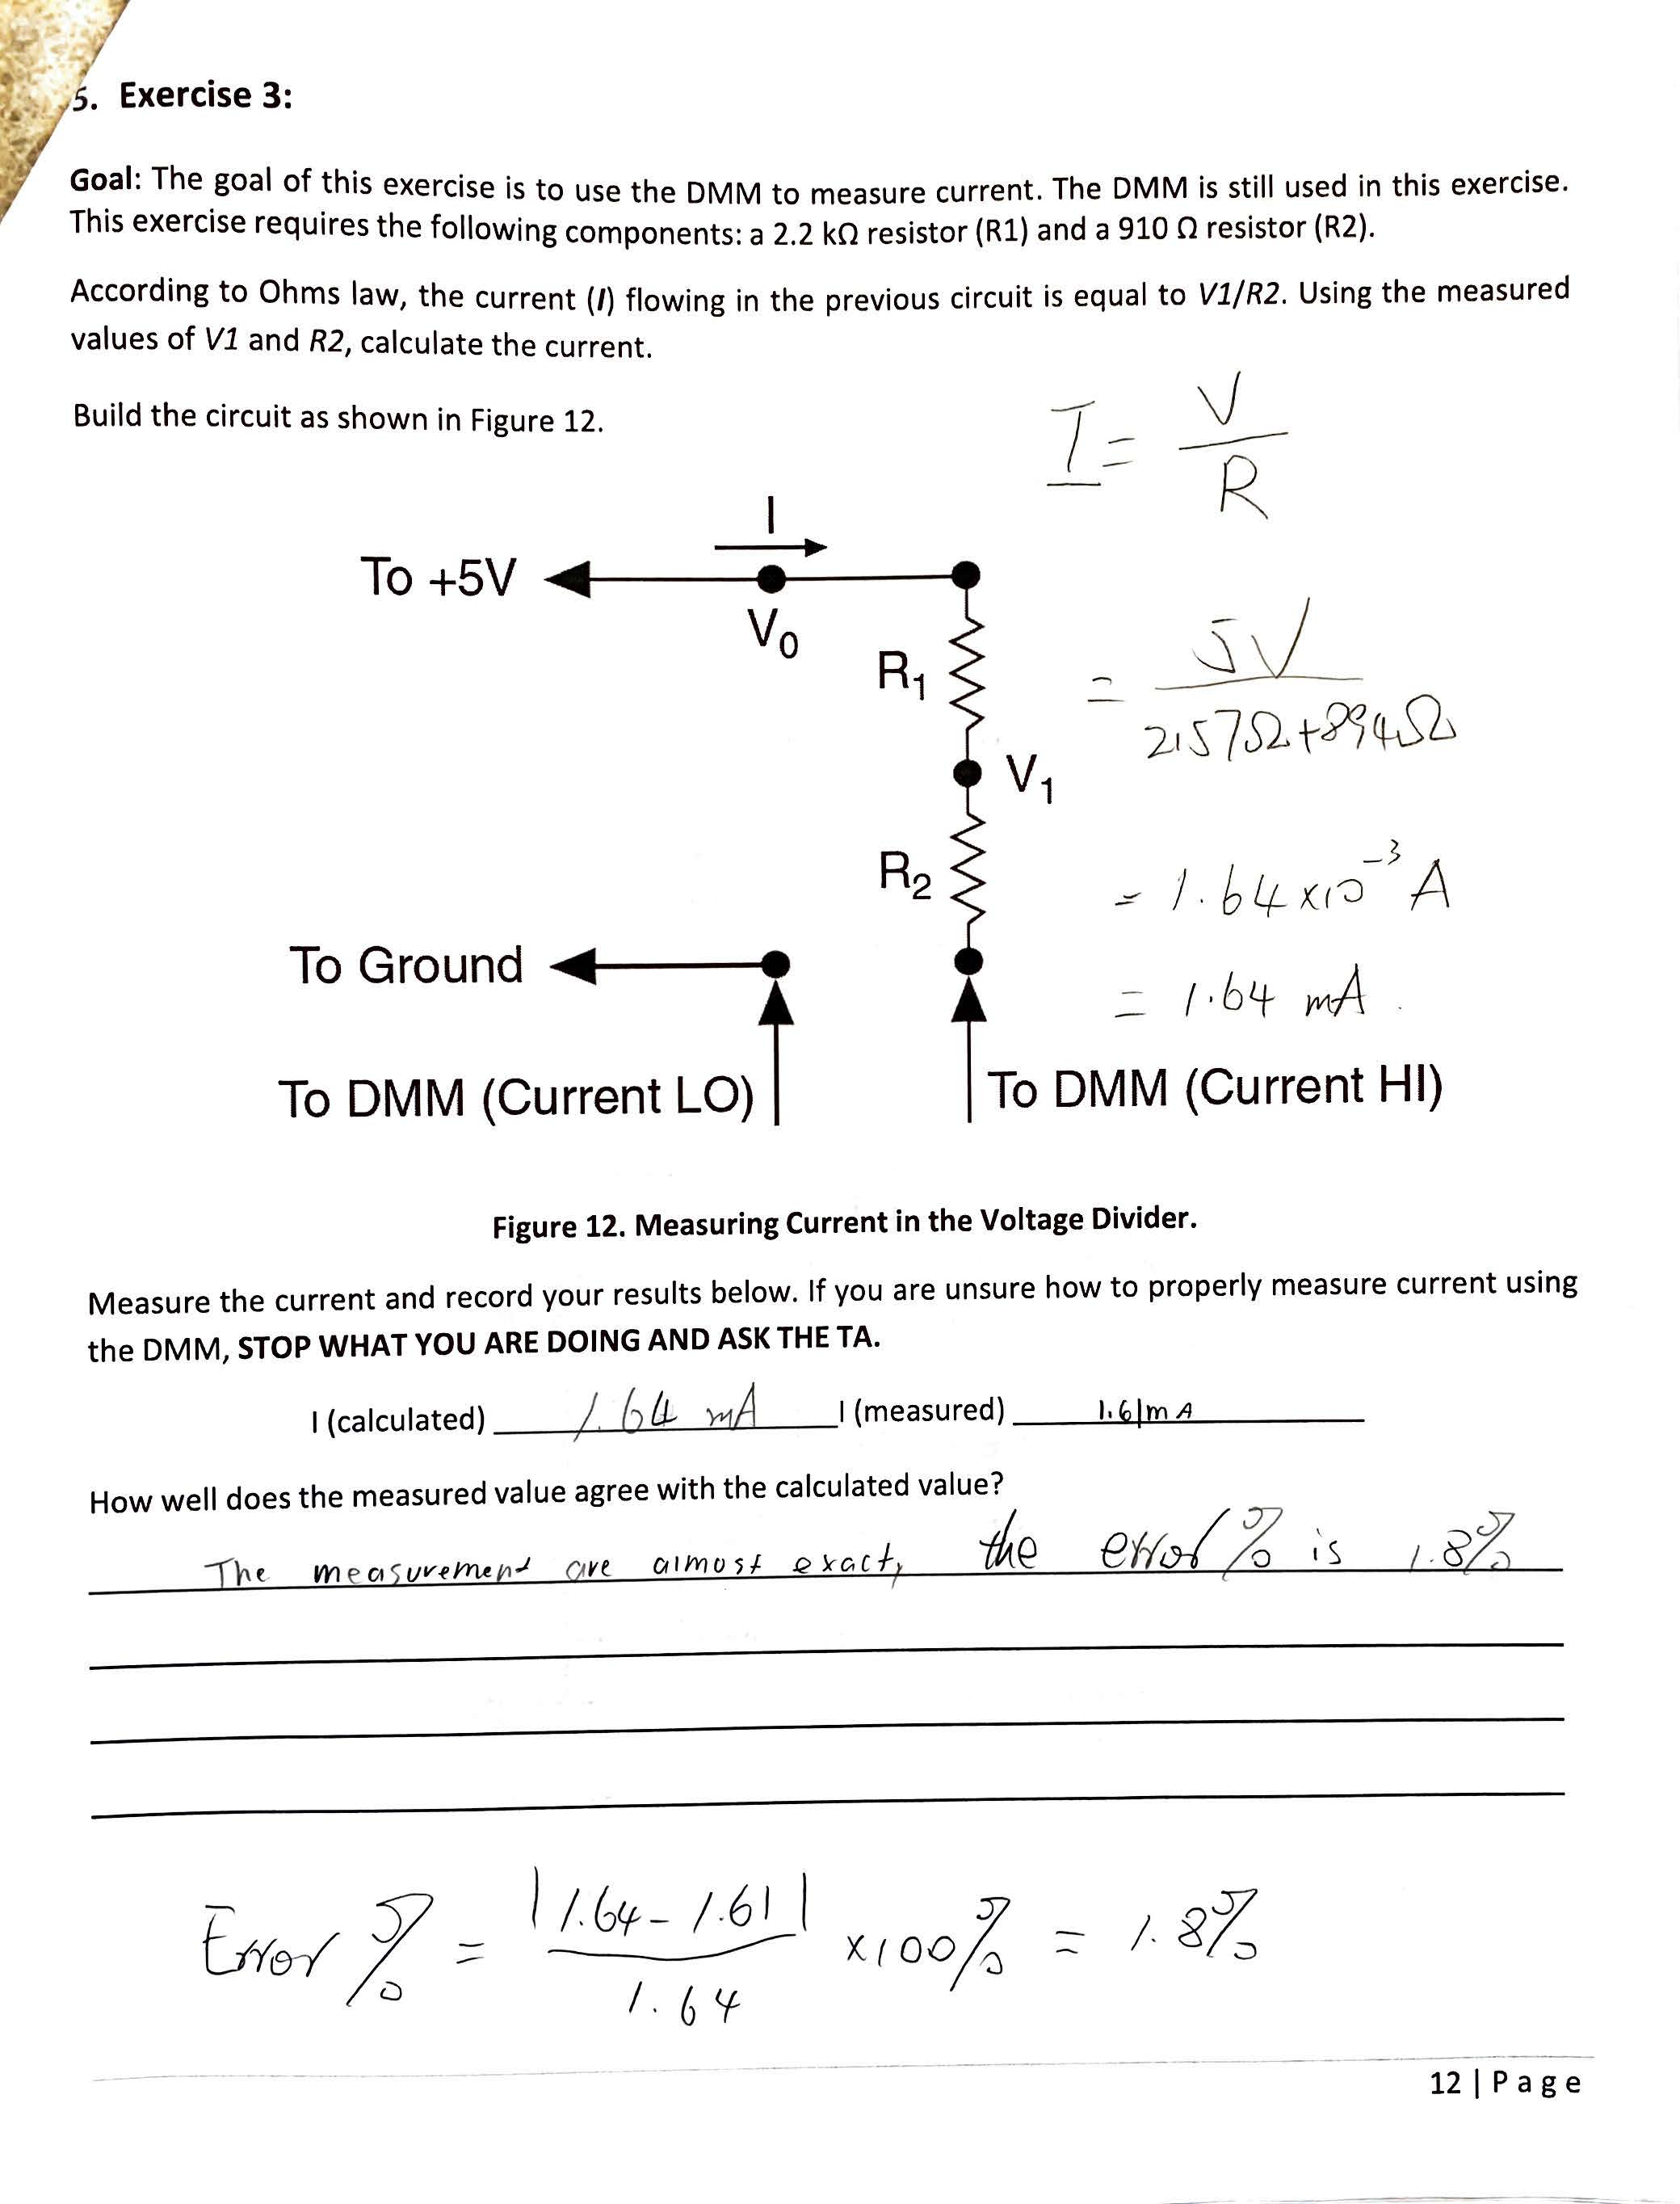 5. Exercise 3:
Goal: The goal of this exercise is to use the DMM to measure current. The DMM is still used in this exercise.
This exercise requires the following components: a 2.2 kΩ resistor (R1) and a 910 Ω resistor (R2).
According to Ohms law, the current (I) flowing in the previous circuit is equal to V1/R2. Using the measured
values of V1 and R2, calculate the current.
Build the circuit as shown in Figure 12.
I = V
R
I
To +5V
V0
R1
= 5V
2157Ω+894Ω
V1
R2
= 1.64 x10⁻³ A
To Ground
= 1.64 mA.
To DMM (Current LO)
To DMM (Current HI)
Figure 12. Measuring Current in the Voltage Divider.
Measure the current and record your results below. If you are unsure how to properly measure current using
the DMM, STOP WHAT YOU ARE DOING AND ASK THE TA.
I (calculated) 1.64 mA I (measured) 1.61mA
How well does the measured value agree with the calculated value?
The measurement are almost exact, the error % is 1.8%
Error % = |1.64 - 1.61| x100% = 1.8%
1.64
12 | Page